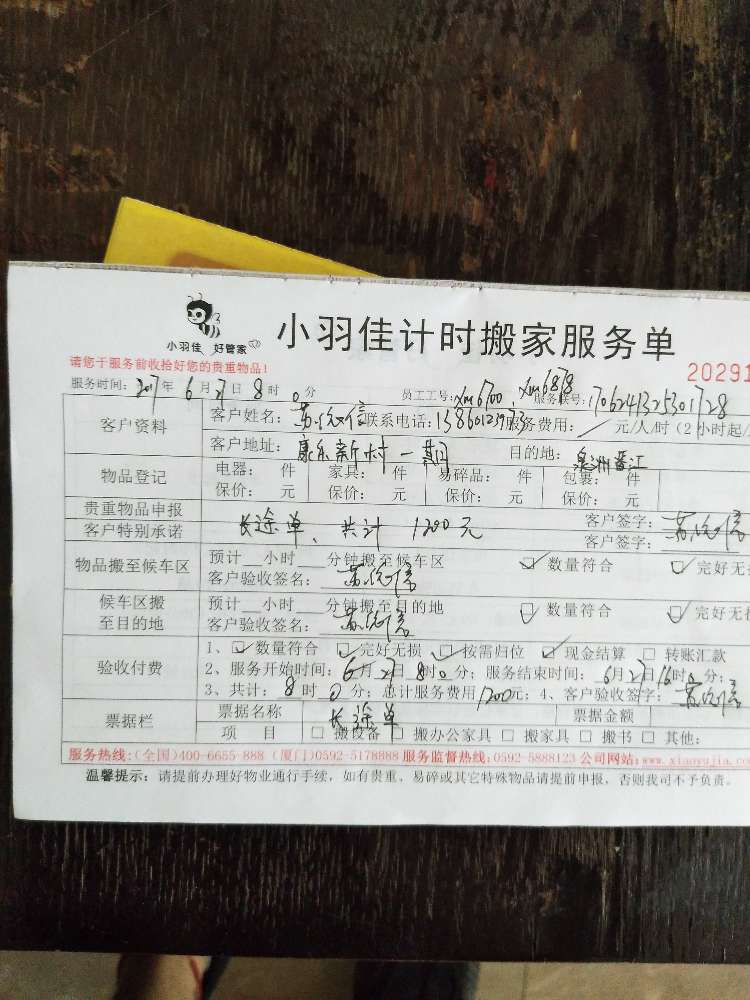 小羽佳 好管家
小羽佳计时搬家服务单
请您于服务前收拾好您的贵重物品!
20291
服务时间: 2017年 6月 27日 8时 0分 员工工号: xm6700、xm6878 服务联号: 1706241325301728
客户资料 客户姓名: 联系电话: 13860123973 服务费用: 元/人/时(2小时起/
客户地址: 康乐新村一期 目的地: 泉州晋江
物品登记 电器: 件 家具: 件 易碎品: 件 包裹: 件
保价: 元 保价: 元 保价: 元 保价: 元
贵重物品申报 客户签字:
客户特别承诺 长途单、共计 1200元 客户签字:
物品搬至候车区 预计__小时__分钟搬至候车区 数量符合 完好无损
客户验收签名:
候车区搬至目的地 预计__小时__分钟搬至目的地 数量符合 完好无损
客户验收签名:
验收付费 1、数量符合 完好无损 按需归位 现金结算 转账汇款
2、服务开始时间: 6月27日8时0分; 服务结束时间: 6月27日16时0分;
3、共计: 8时 0分; 总计服务费用1200元; 4、客户验收签字:
票据栏 票据名称 长途单 票据金额
项 目 搬设备 搬办公家具 搬家具 搬书 其他:
服务热线:(全国)400-6655-888 (厦门)0592-5178888 服务监督热线:0592-5888123 公司网站:www.xiaoyujia.com
温馨提示: 请提前办理好物业通行手续, 如有贵重、易碎或其它特殊物品请提前申报, 否则我司不予负责。